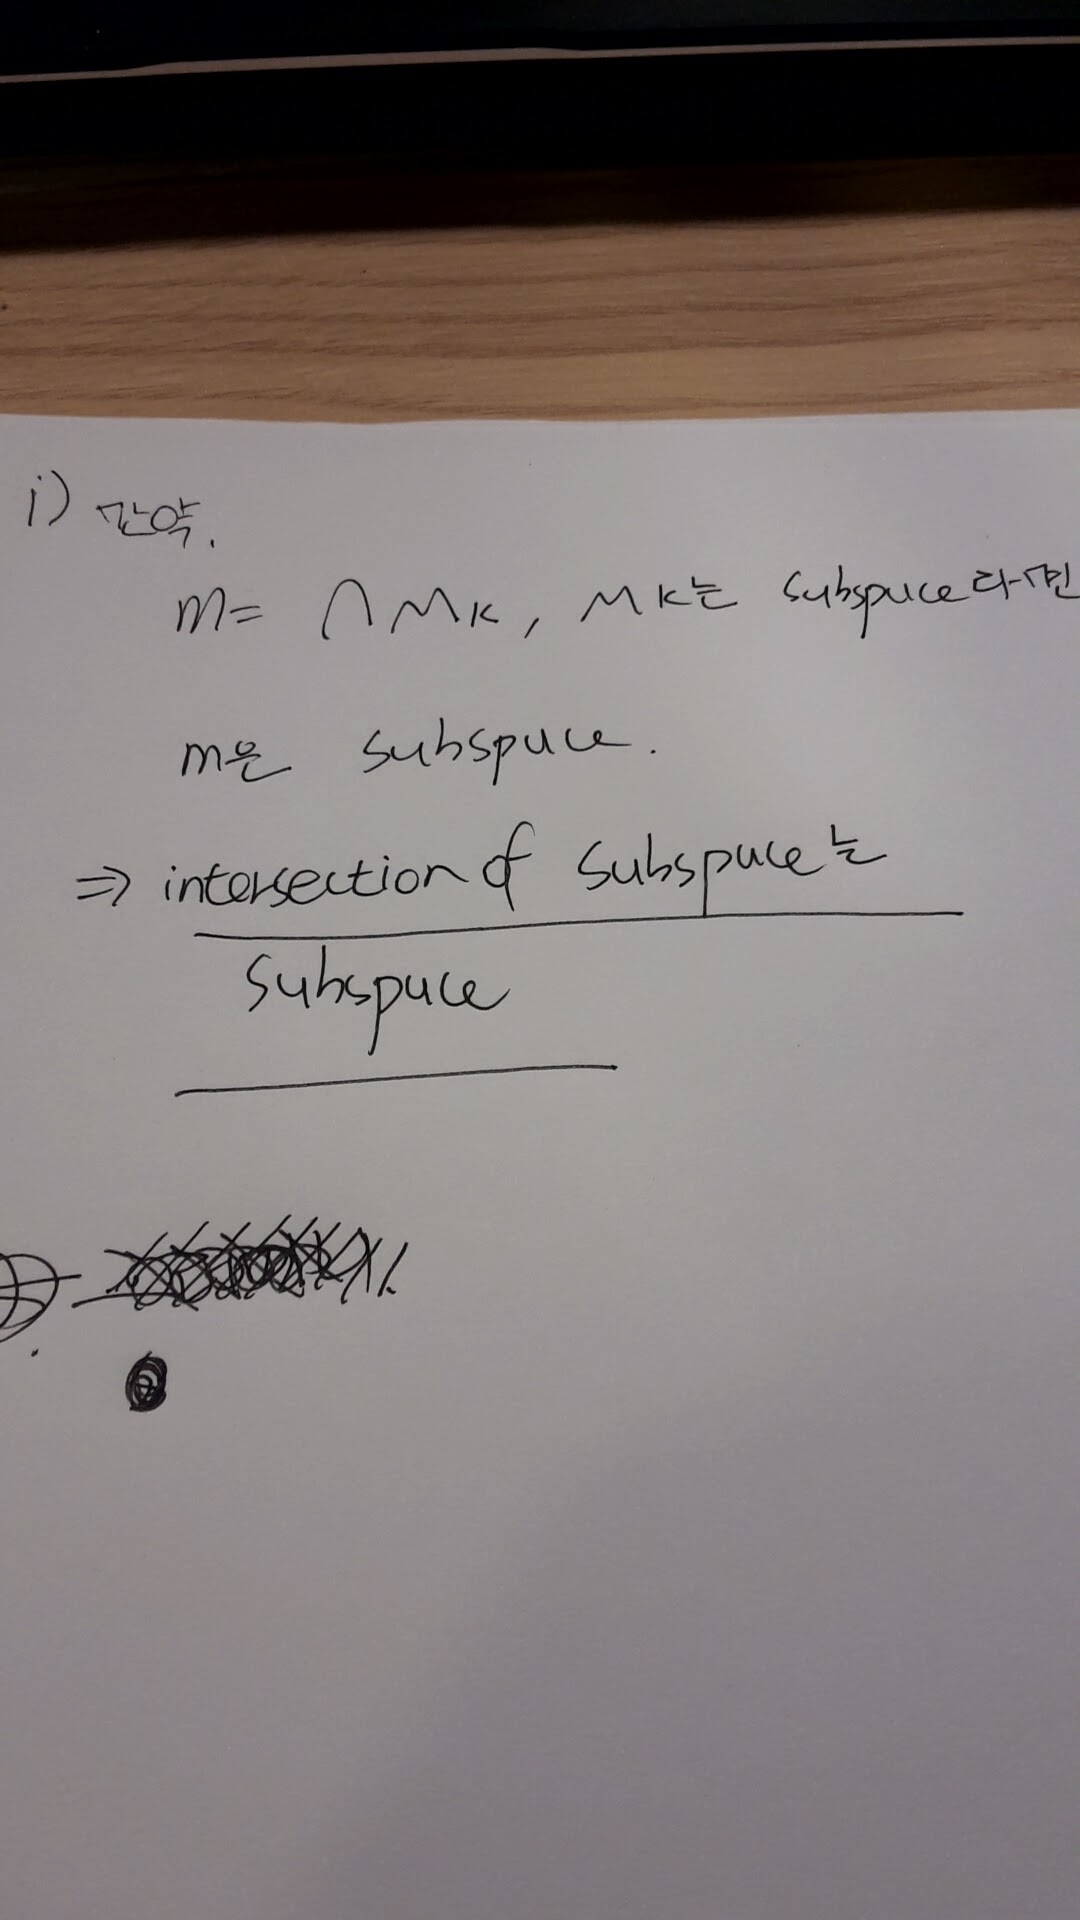 i) 만약.
m = ∩ Mk, Mk는 subspace라면
m은 subspace.
⇒ intersection of subspace는
subspace